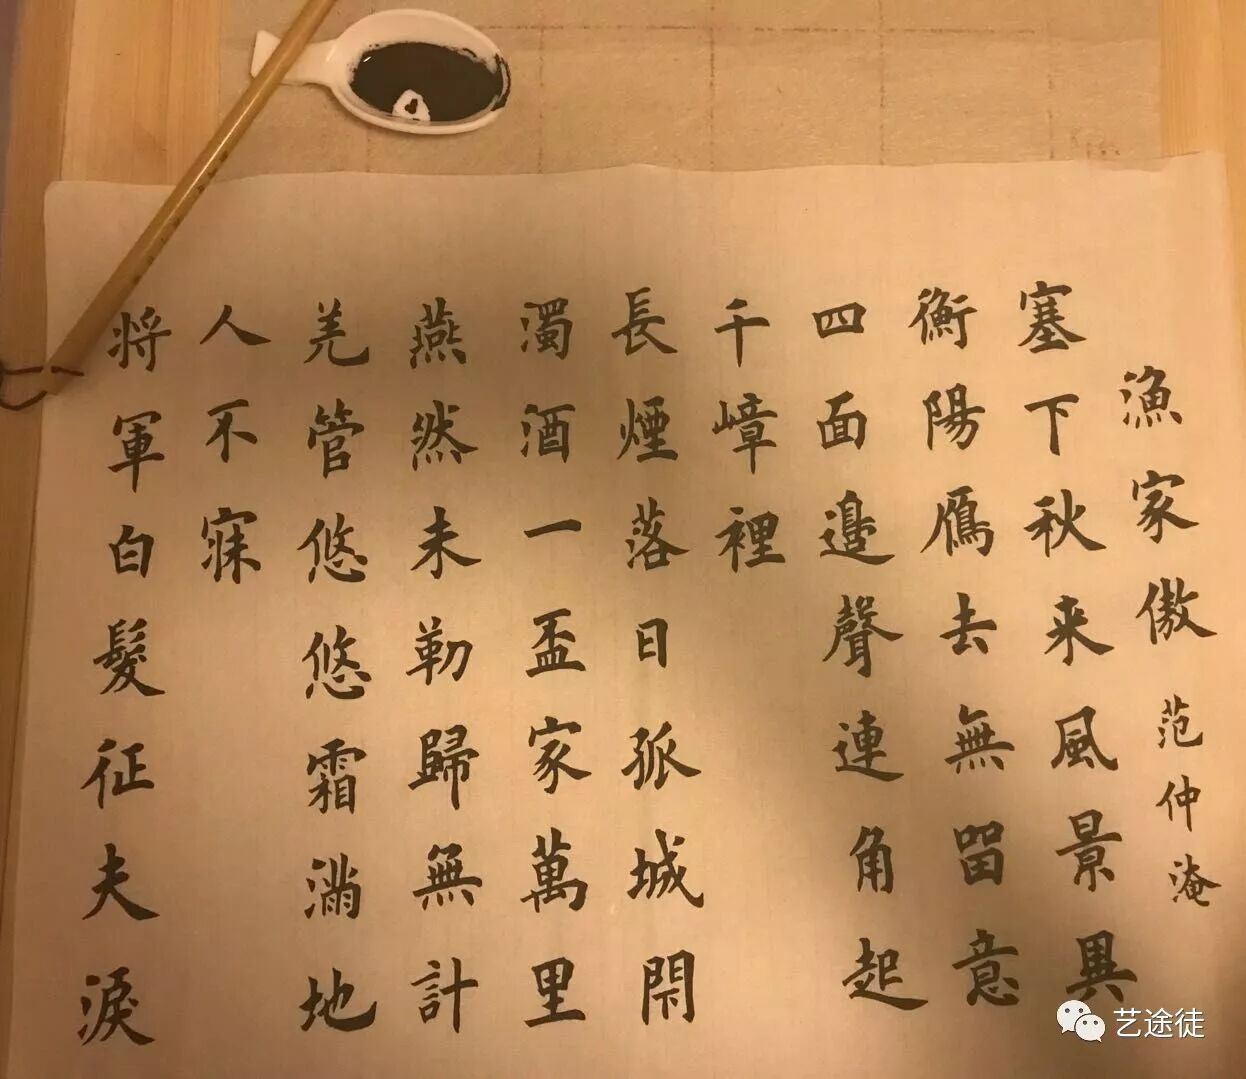 漁家傲 范仲淹
塞下秋来風景異
衡陽鴈去無留意
四面邉聲連角起
千嶂裡
長煙落日孤城閇
濁酒一盃家萬里
燕然未勒歸無計
羌管悠悠霜滿地
人不寐
将軍白髮征夫淚
艺途徒